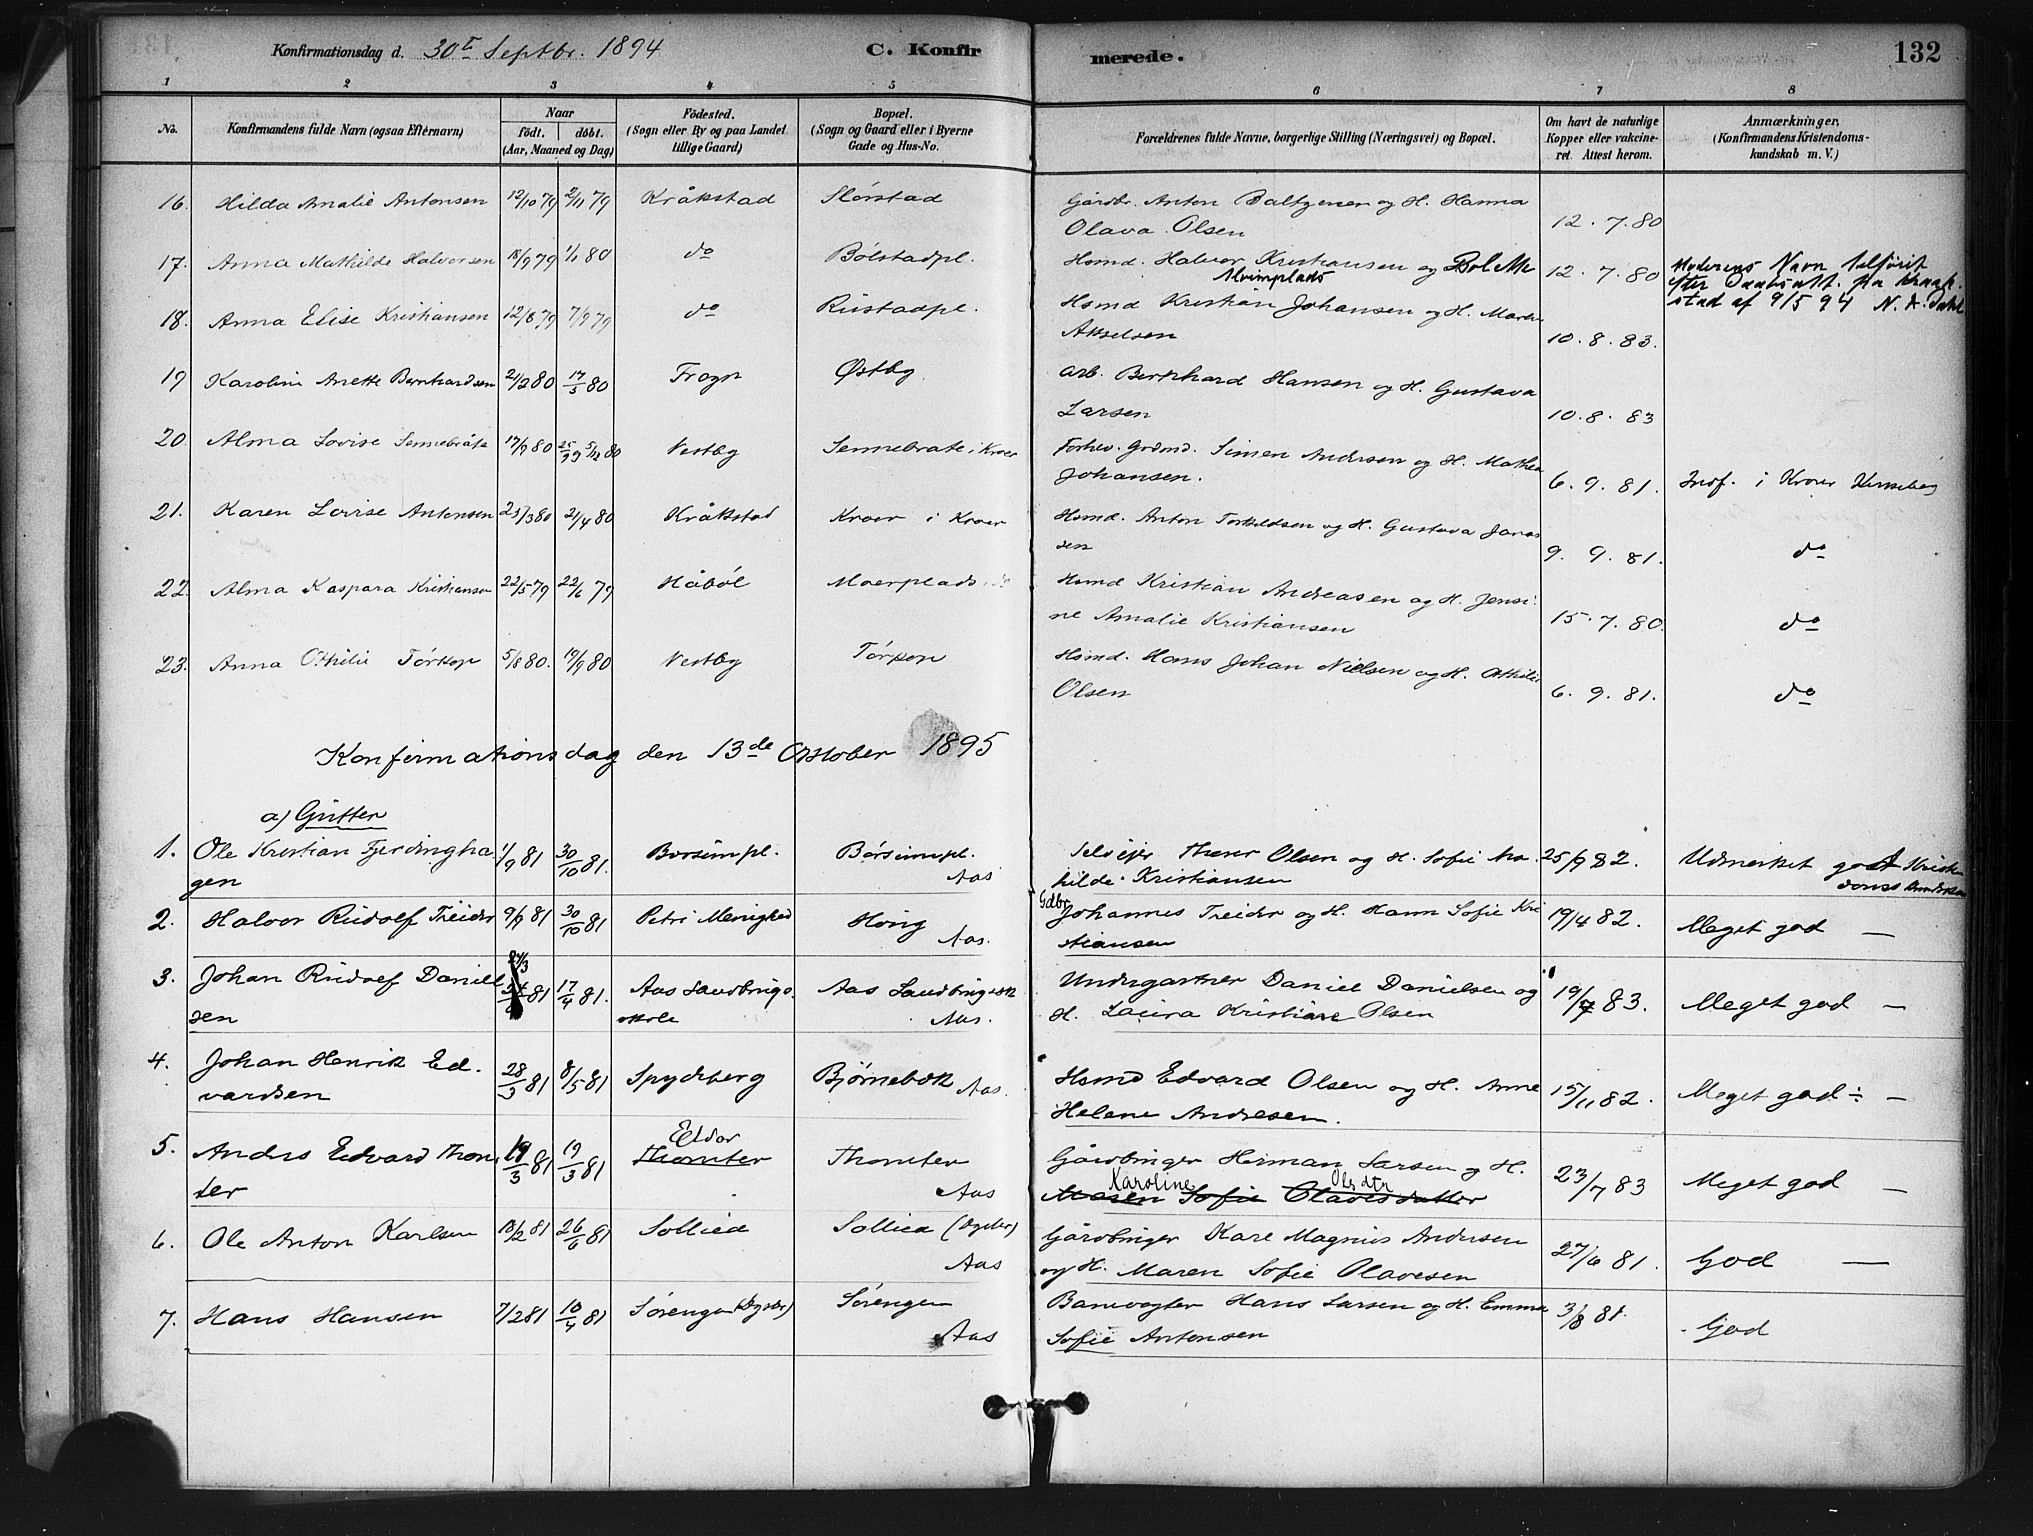 Konfirmationsdag d. 30t Septbr. 1894 C. Konfir merede. 132
1 2 3 4 5 6 7 8
No. Konfirmandens fulde Navn (ogsaa Efternavn) Naar födt. döbt. (Aar, Maaned og Dag) Födested. (Sogn eller By og paa Landet tillige Gaard) Bopæl. (Sogn og Gaard eller i Byerne Gade og Hus-No. Forældrenes fulde Navne, borgerlige Stilling (Næringsvei) og Bopæl. Om havt de naturlige Kopper eller vakcineret. Attest herom. Anmærkninger, (Konfirmandens Kristendomskundskab m. V.)
16. Hilda Amalie Antonsen 12/10 79 2/11 79 Kråkstad Gårdbr. Anton Baltzersen og H. Hanna
Olava Olsen 12. 7. 80
17. Anna Mathilde Halvorsen 18/9 79 1/1 80 do Bølstadpl. Hsmd. Halvor Kristiansen og 12. 7. 80 Moderens Navn tilføiet
efter Daabsatt. fra Kraak-
stad af 9/5 94 N. A. Dahl
18. Anna Elise Kristiansen 12/8 79 7/9 79 do Rustadpl. Hsmd Kristian Johansen og H. Maren
Akselsen 10. 8. 83.
19 Karoline Anette Bernhardsen 21/2 80 17/5 80 Frogn Østby Arb. Bernhard Hansen og H. Gustava
Larsen 10. 8. 83
20. Alma Lovise Sennebråte 17/9 80 5/12 80 Vestby Sennebråte i Kroer Forhv. Grdmd. Simen Andersen og H. Mathea
Johansen. 6. 9. 81. Indf. i Kroer
21. Karen Lovise Antonsen 25/3 80 2/4 80 Kråkstad Kroer i Kroer Hsmd. Anton Torkildsen og H. Gustava Jonas
sen 9. 9. 81. do
22. Alma Kaspara Kristiansen 22/5 79 22/6 79 Håbøl Moerplads Hsmd Kristian Andreasen og H. Jensi-
ne Amalie Kristiansen 15. 7. 80. do
23. Anna Othilie Tørkop 5/8 80. 19/9 80 Vestby Tørkop Hsmd. Hans Johan Nielsen og H. Othilie
Olsen 6. 9. 81. do
Konfirmationsdag den 13de October 1895
a) Gutter
1. Ole Kristian Fjerdingha 1/9 81 30/10 81. Børsumpl. Børsumpl. Selveier Thorer Olsen og H. Sofie Ma- 25/9 82. Udmerket godt Kristen
gen Aas tilde Kristiansen doms kundskab
2. Halvor Rudolf Treider 9/9 81 30/10 81 Petri Menighed Hong Gdbr. Johannes Treider og H. Hann Sofie Kri 19/4 82. Meget god —
Aas. stiansen
3. Johan Rudolf Daniel 24/3 81 17/4 81. Aas Landbrugs Aas Landbrugssk Undergartner Daniel Danielsen og 19/7 83. Meget god —
sen skole Aas. H. Laura Kristiane Olsen
4. Johan Henrik Ed. 28/3 81 8/5 81 Spydeberg Bjørnebek Aas. Hsmd Edvard Olsen og H. Anne 15/11 82. Meget god ÷ —
vardsen Helene Andresen.
5. Anders Edvard Thom 19/3 81 19/3 81 Eldor Thomter Thomter Gårdbruger Herman Larsen og H. 23/7 83 Meget god —
ter Aas Karoline Olsdtr Maren Sofie Olavesdatter
6. Ole Anton Karlsen 18/2 81 26/6 81 Sollied Sollied Gårdbruger Karl Magnus Andersen 27/6 81. God —
Aas og H. Maren Sofie Olavesen
7. Hans Hansen 7/2 81 10/4 81 Sørengen Sørengen Banevogter Hans Larsen og H. Emma 3/8 81. God
Aas Sofie Antonsen